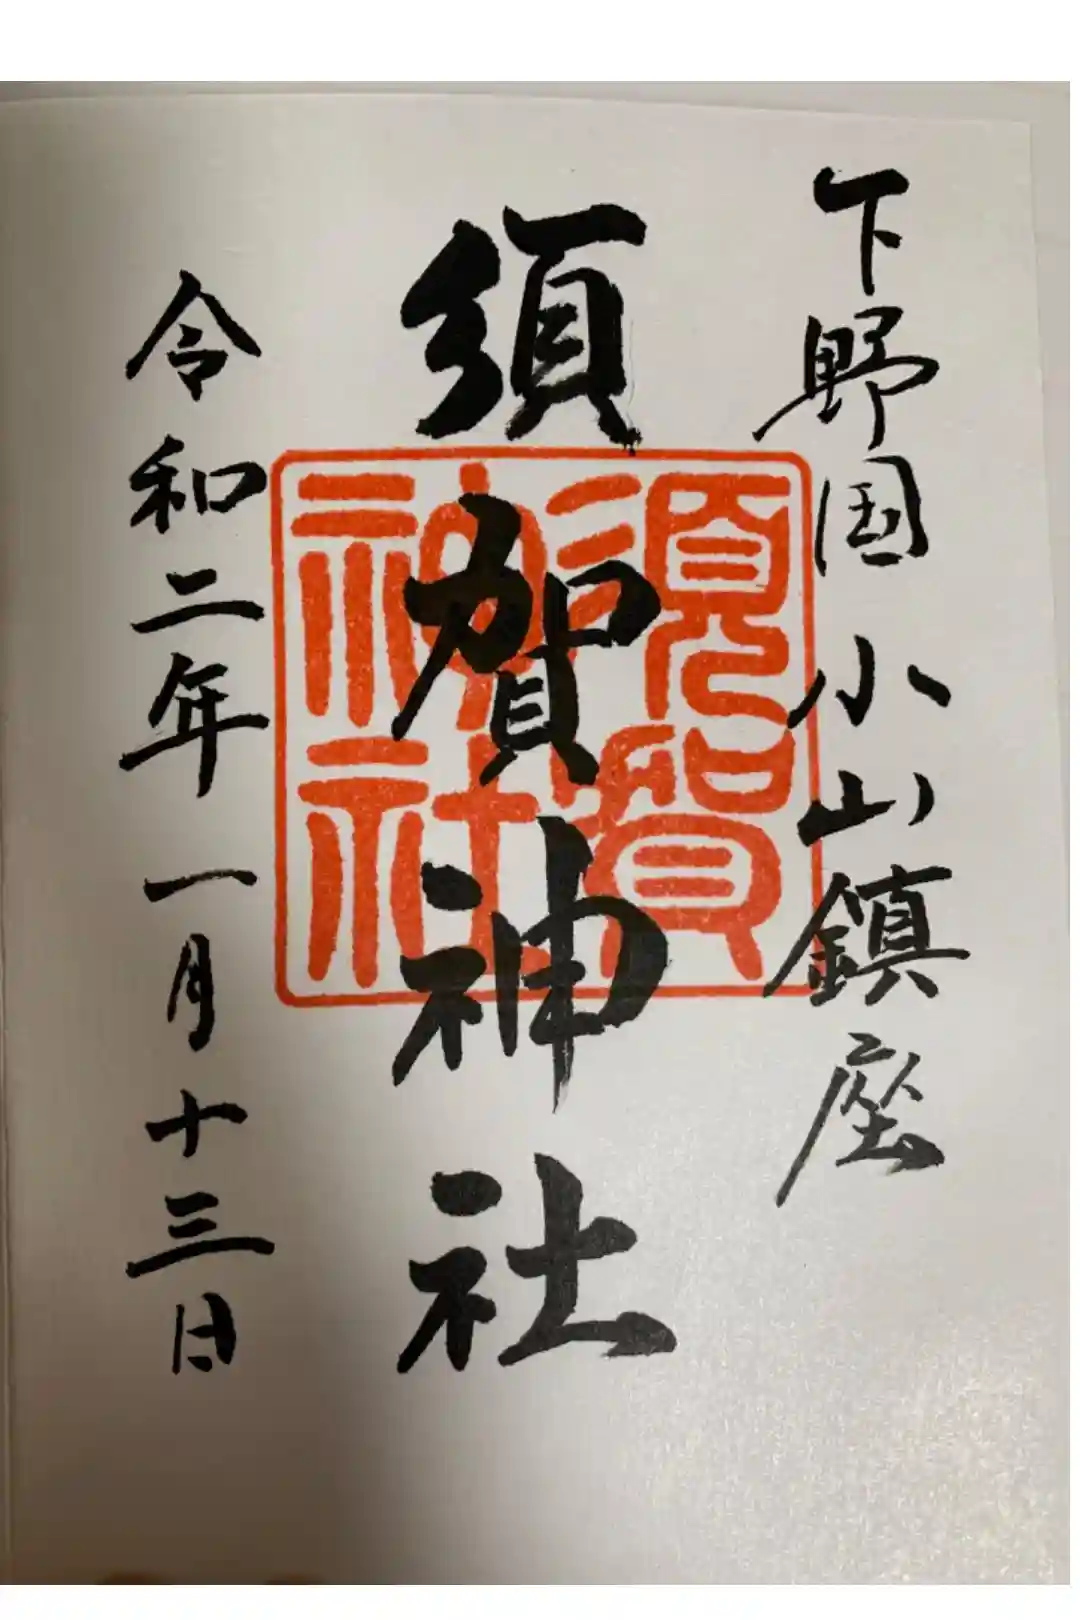 下野国小山鎮座
須賀神社
須賀
神社
令和二年一月十三日